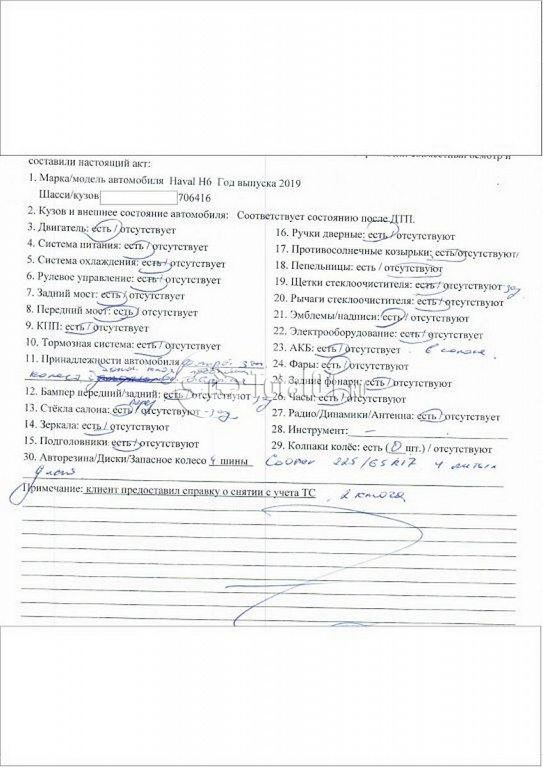 составили настоящий акт:
1. Марка/модель автомобиля Haval H6 Год выпуска 2019
Шасси/кузов 706416
2. Кузов и внешнее состояние автомобиля: Соответствует состоянию после ДТП.
3. Двигатель: есть / отсутствует
4. Система питания: есть / отсутствует
5. Система охлаждения: есть / отсутствует
6. Рулевое управление: есть / отсутствует
7. Задний мост: есть / отсутствует
8. Передний мост: есть / отсутствует
9. КПП: есть / отсутствует
10. Тормозная система: есть / отсутствует
11. Принадлежности автомобиля
колеса
12. Бампер передний/задний: есть / отсутствуют зад
13. Стёкла салона: есть / отсутствуют - зад
14. Зеркала: есть / отсутствуют
15. Подголовники: есть / отсутствуют
16. Ручки дверные: есть / отсутствуют
17. Противосолнечные козырьки: есть/отсутствуют/
18. Пепельницы: есть / отсутствуют
19. Щетки стеклоочистителя: есть / отсутствуют зад.
20. Рычаги стеклоочистителя: есть / отсутствуют
21. Эмблемы/надписи: есть / отсутствуют
22. Электрооборудование: есть / отсутствует
23. АКБ: есть / отсутствует в салоне.
24. Фары: есть / отсутствуют
25. Задние фонари: есть / отсутствуют
26. Часы: есть / отсутствуют
27. Радио/Динамики/Антенна: есть / отсутствует
28. Инструмент: –
29. Колпаки колёс: есть ( 0 шт.) / отсутствуют
30. Авторезина/Диски/Запасное колесо 4 шины Cooper 225/65R17 4 литых
Примечание: клиент предоставил справку о снятии с учета ТС , 2 ключа